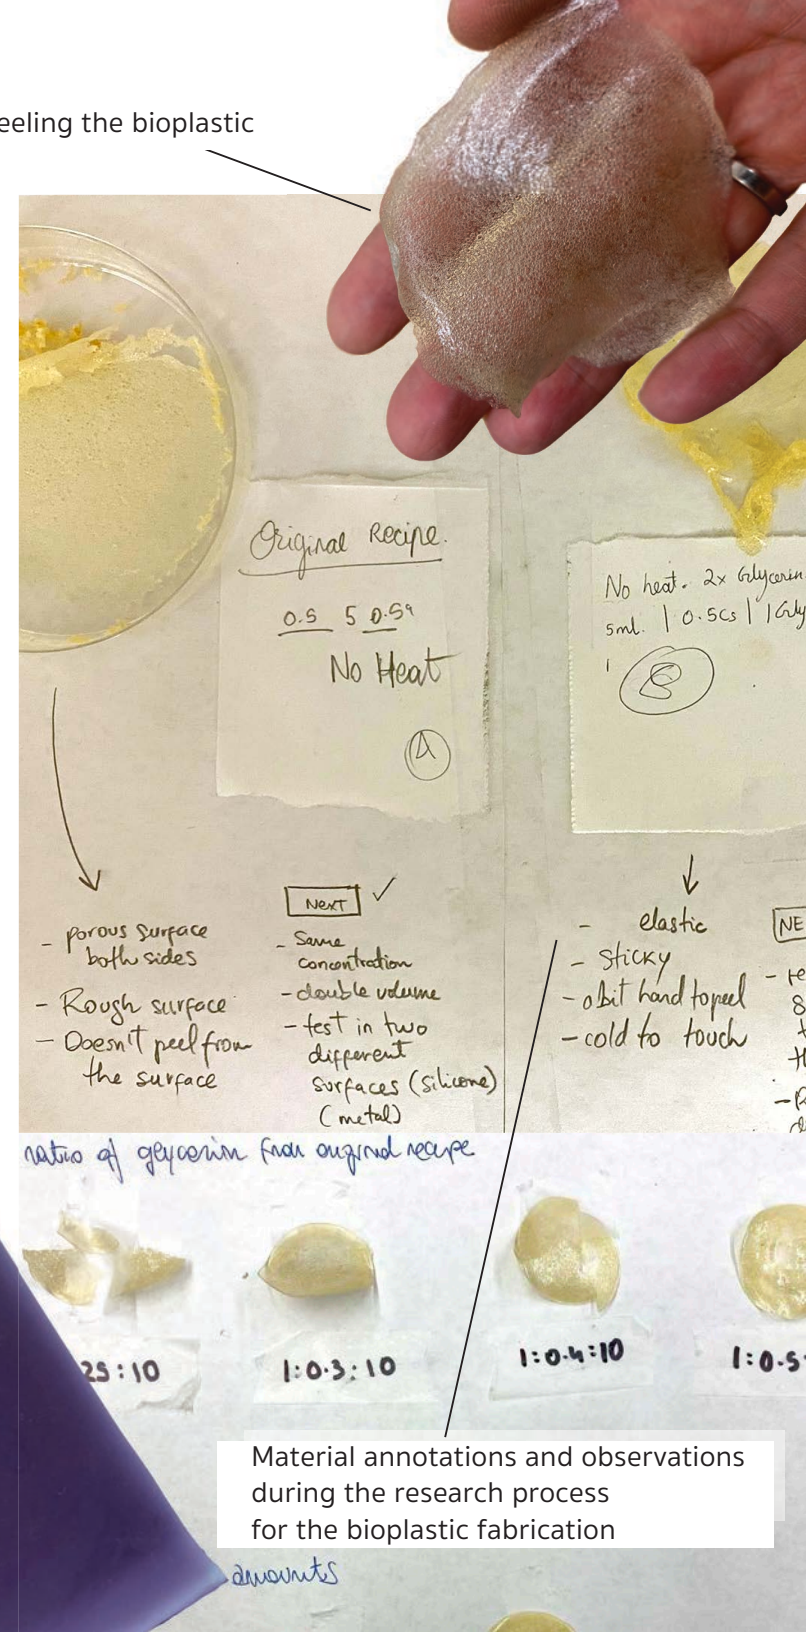 eeling the bioplastic
Original Recipe.
0.5 5 0.5g
No Heat
A
No heat. 2x Glycerin
5ml. | 0.5Cs | 1 Gly
B
- porous surface
both sides
- Rough surface
- Doesn't peel from
the surface
NEXT ✓
- Same
concentration
- double volume
- test in two
different
surfaces (silicone)
(metal)
- elastic
- sticky
- a bit hard to peel
- cold to touch
NE
- re
8
ratio of glycerin from original recipe
25:10
1:0.3:10
1:0.4:10
1:0.5
Material annotations and observations
during the research process
for the bioplastic fabrication
amounts